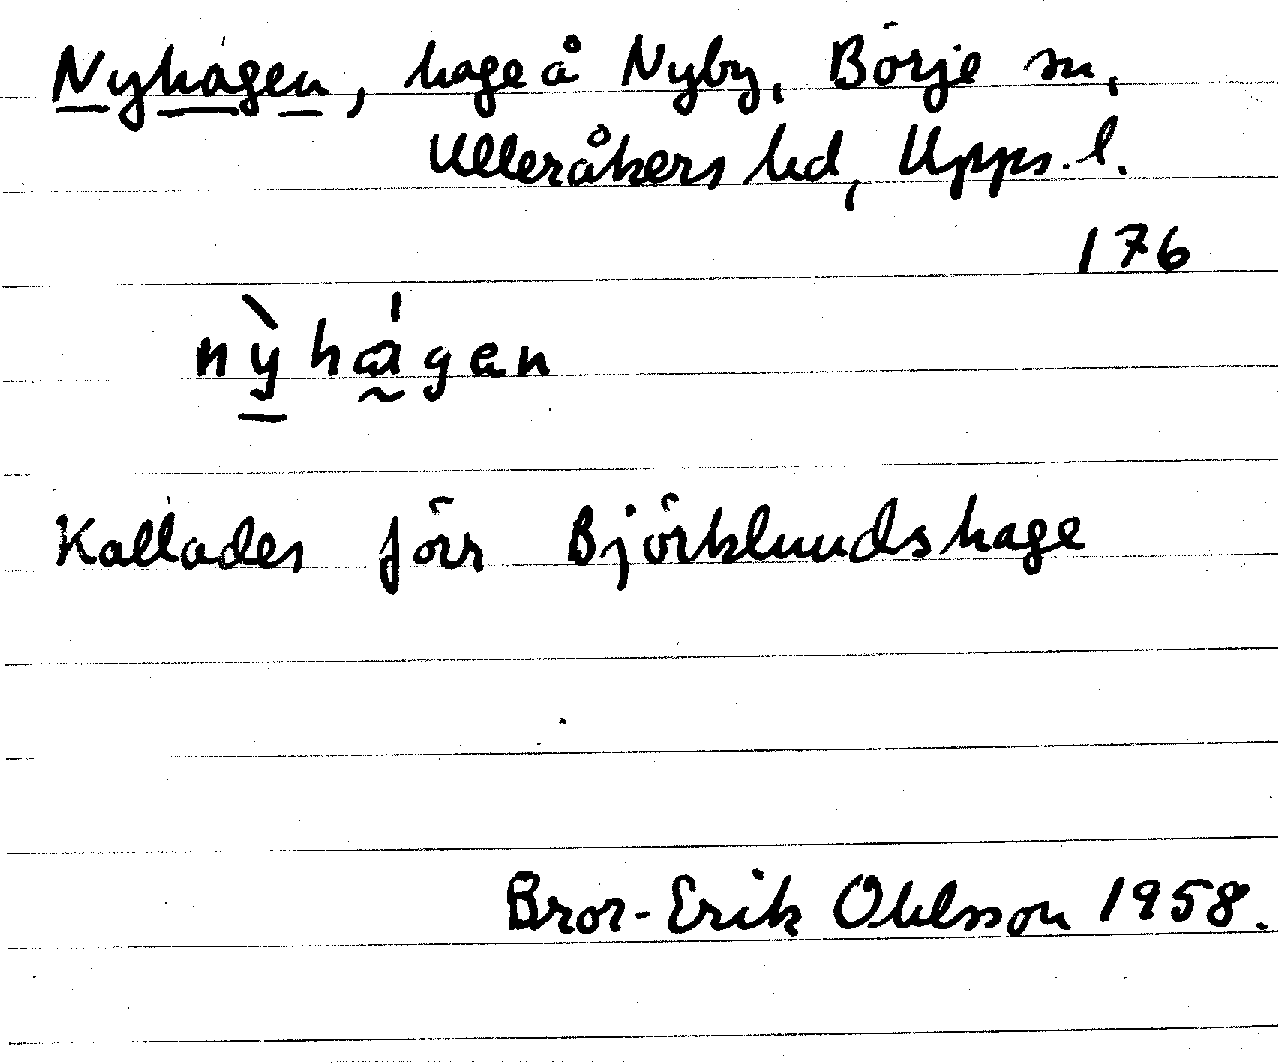 Nyhagen, hage å Nyby, Börje sn,
Ulleråkers hd, Upps. l.
176
nỳhágen
Kallades förr Björklundshage
Bror-Erik Ohlsson 1958.